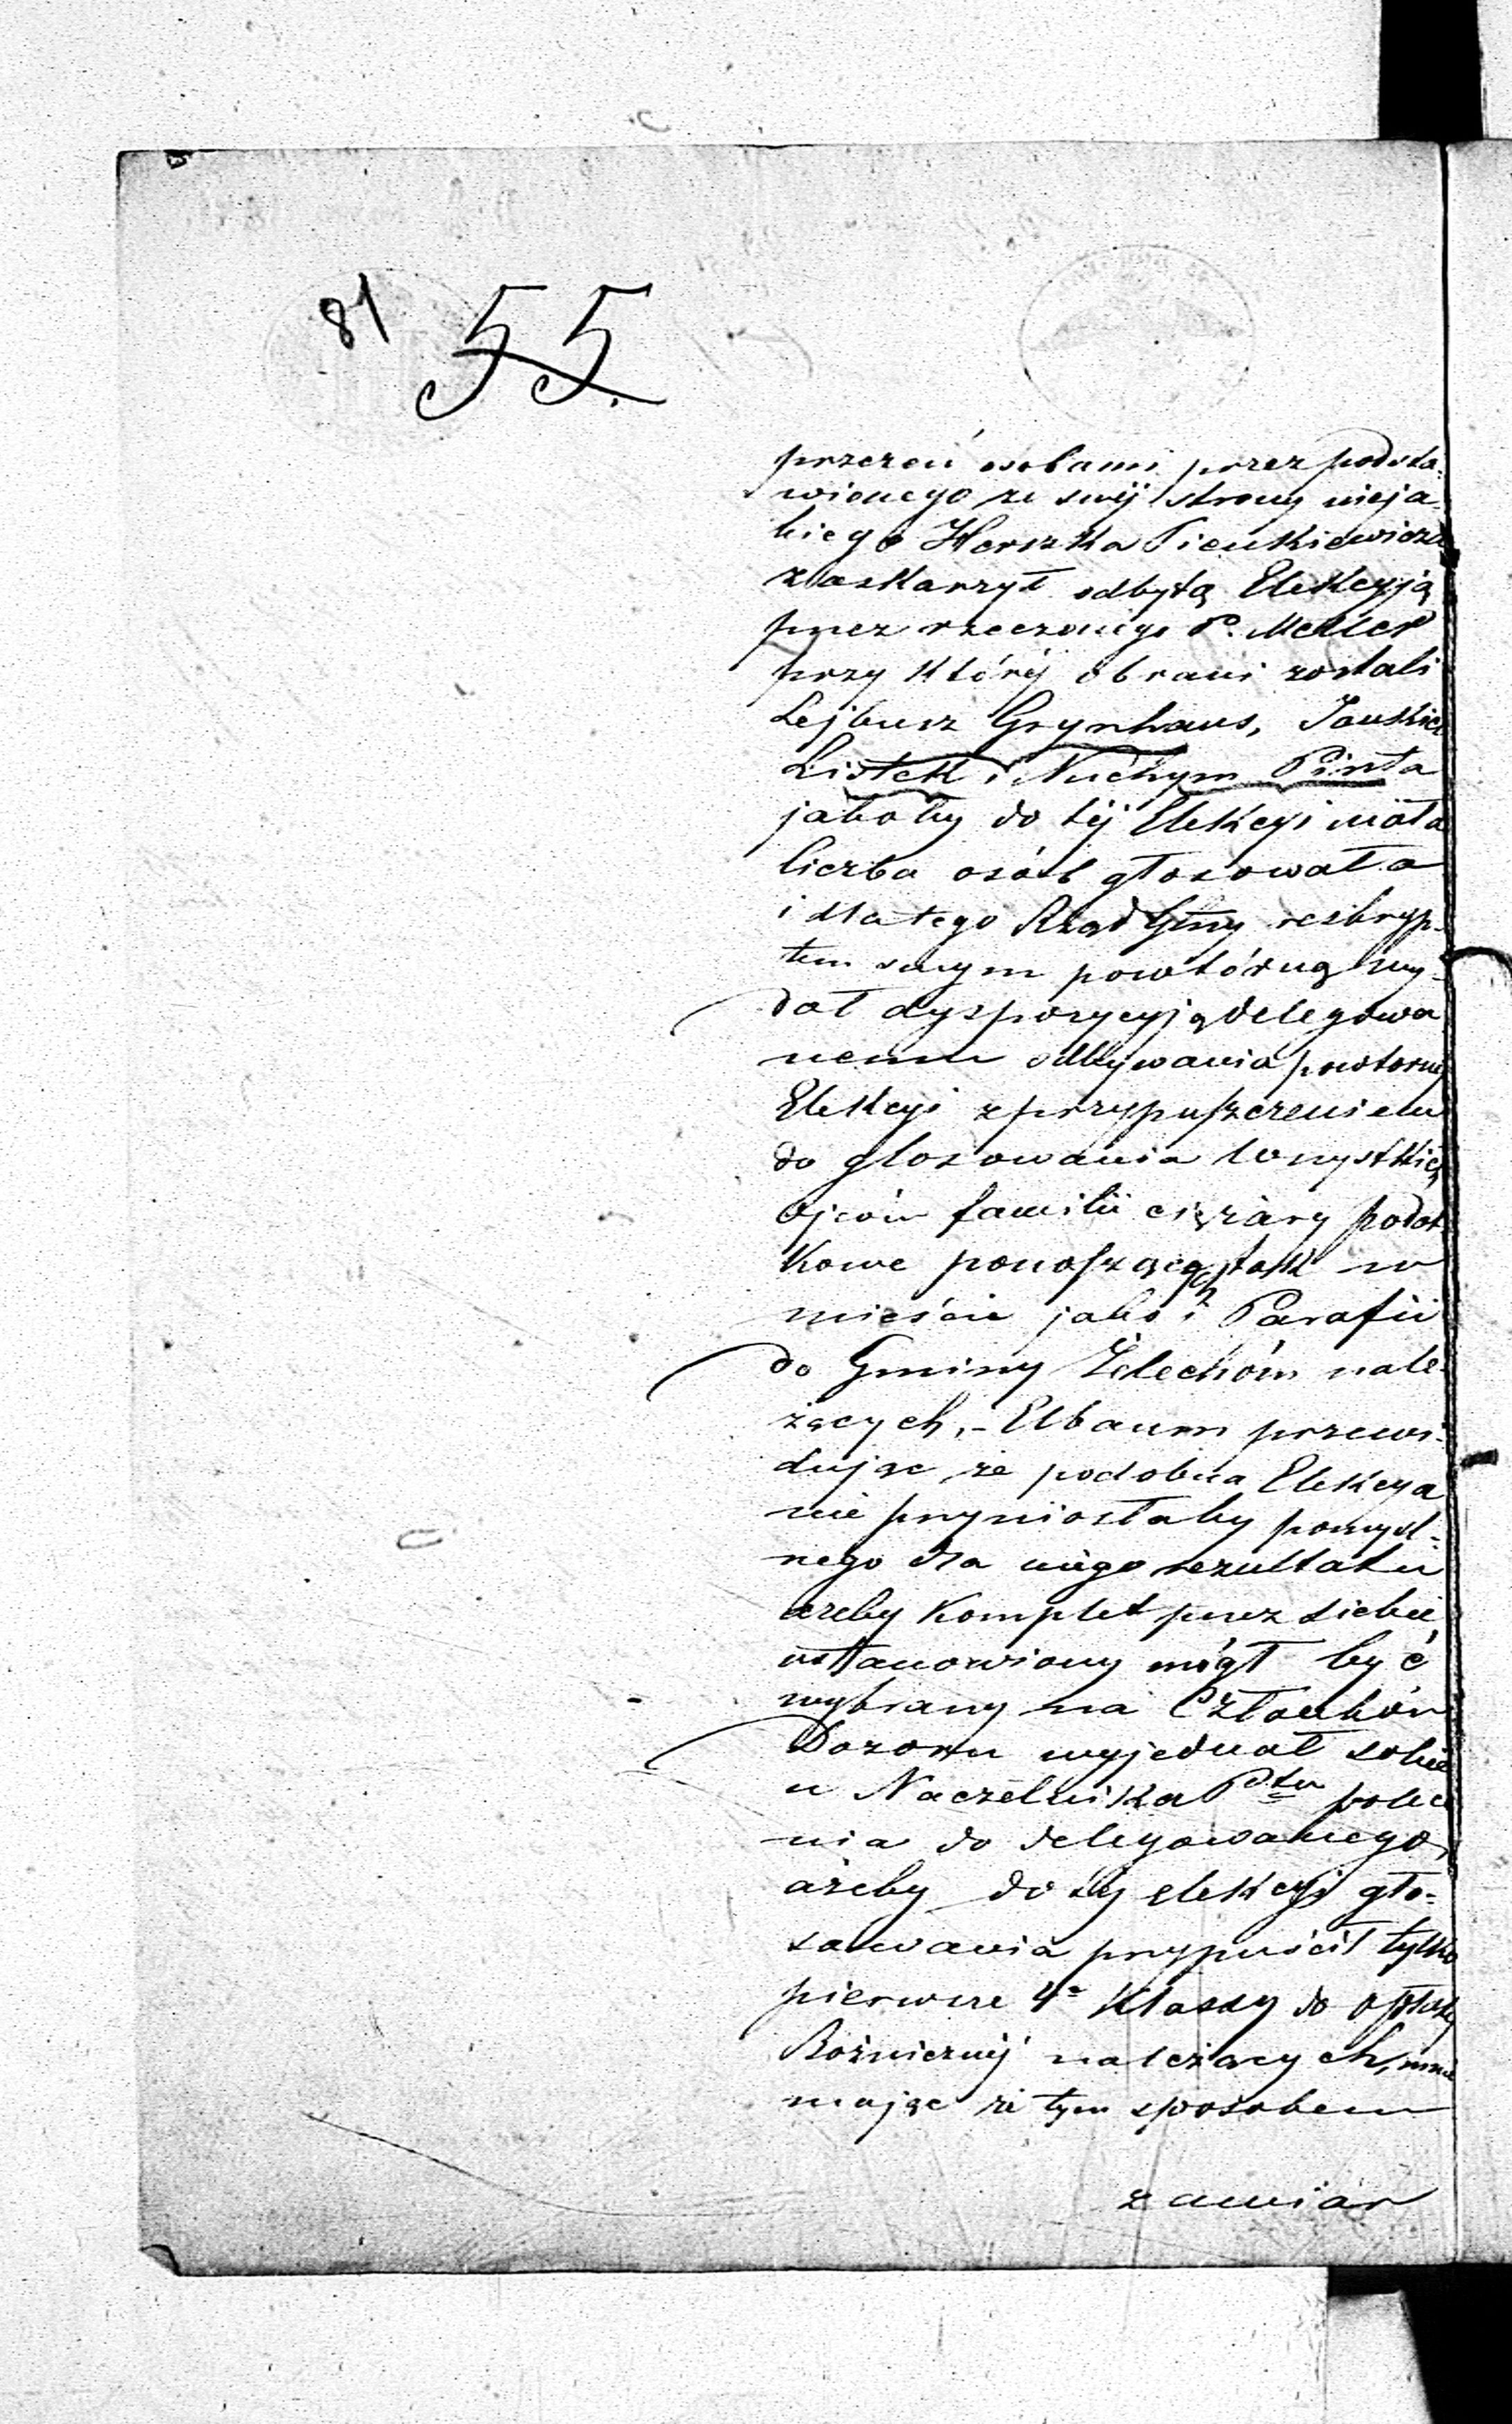 81 55.
przezeń osobami przez podsta-
wionego ze swéj strony nieja-
kiego Herszka Pieńkiewicza
zaskarzył odbytą Elekcyją
przez rzeczonego P. Meller
przy któréj obrani zostali
Lejbusz Grynhaus, Jankiel
Listek i Nuchym Pinta
jakoby do téj Elekcyi mała
liczba osób głosowała
i dlatego Rząd Gbny reskryp-
tem swym powtórną wy-
dał dyspozycyją delegowa
nemu odbywania powtorny
Elekcyi z przypuszczeniem
do głosowania wszystkich
ojców familii ciężary podat
kowe ponoszących tak w
mieście jako i Parafii
do Gminy Żelechów nale-
żących, - Elbaum przewi-
dując że podobna Elekcya
nie przyniosłaby pomyśl-
nego dla niego rezultatu
ażeby komplet przez siebie
ustanowiony mógł być
wybrany na Członków
Dozoru wyjednał sobie
u Naczelnika Ptu polece
nia do delegowanego,
ażeby do téj elekcyi gło-
sowania przypuścił tylko
pierwsze 4ry klassy do opłaty
Bożnicznéj należących, mnie
mając że tym sposobem
zamiar